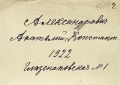 Александрова
Анатолий Констант
1922
Глазенаповская №1